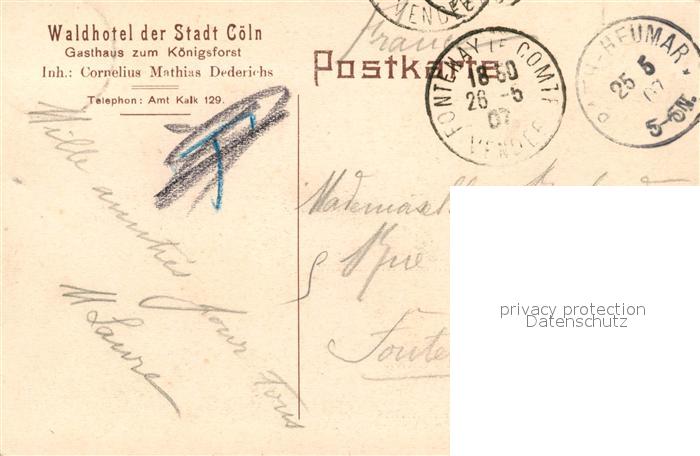 Waldhotel der Stadt Cöln
Gasthaus zum Königsforst
Inh.: Cornelius Mathias Dederichs
Telephon: Amt Kalk 129.
Postkarte
VENDEE
FONTENAY-LE-COMTE
18 50
26 -5
07
VENDEE
-HEUMAR
25 5
07
5-6N.
T
Mille amitiés pour Tous
M Laure
Mademoiselle
Rue
Fonte
privacy protection
Datenschutz